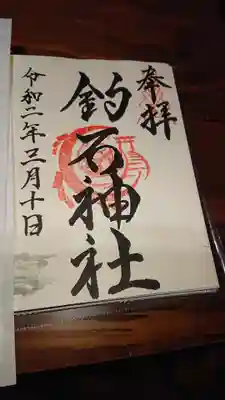 奉拝
釣石神社
令和二年三月十日